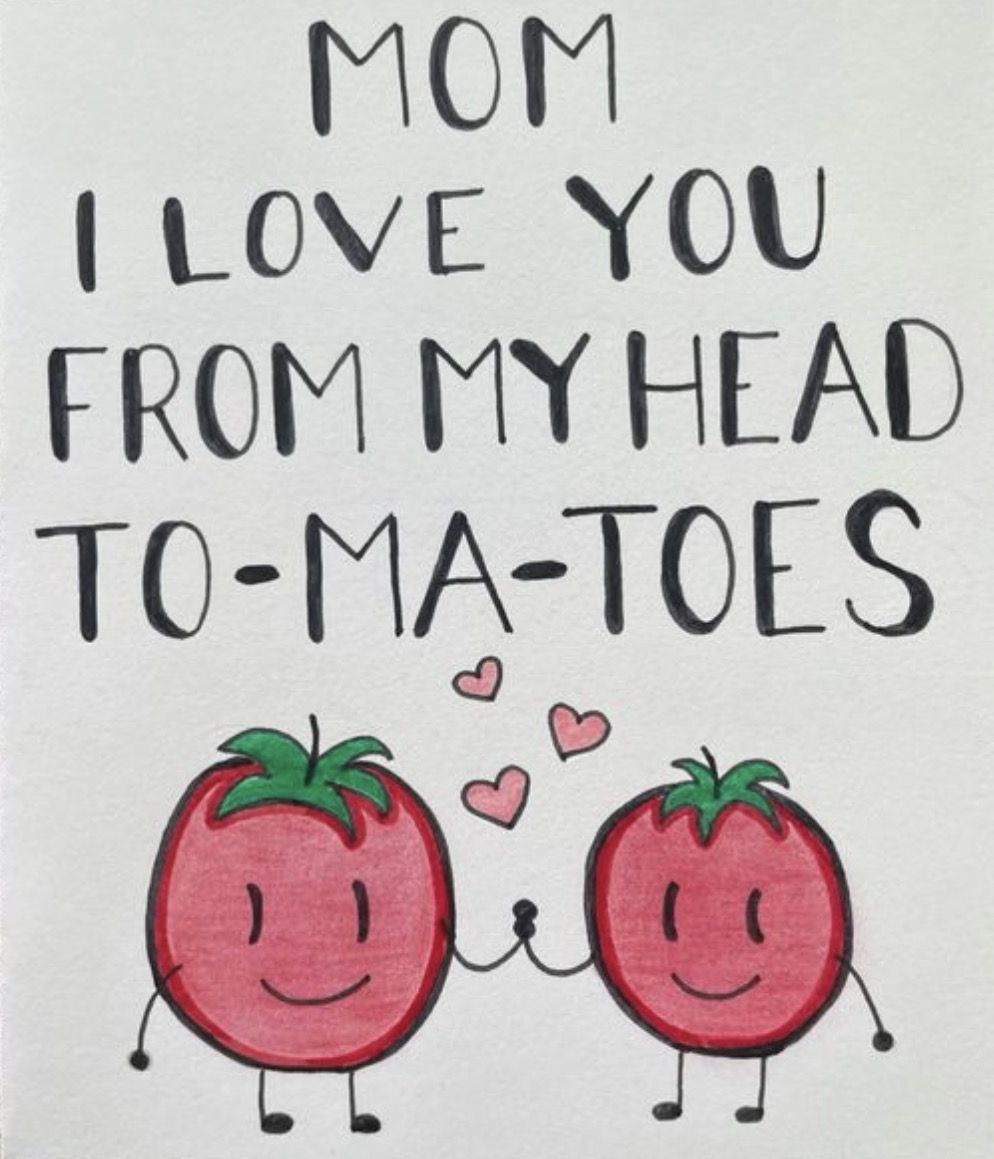 MOM
I LOVE YOU
FROM MY HEAD
TO-MA-TOES